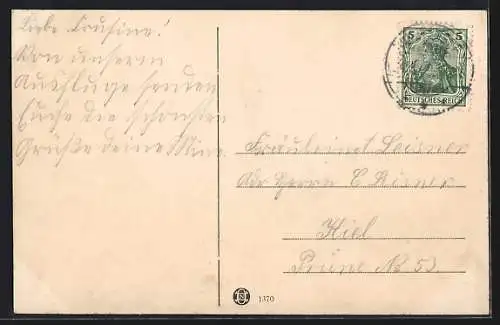 Liebe Cousine!
Von unserm
Ausfluge senden
Euche die schönsten
Grüße deine Mine
5 5
DEUTSCHES REICH
Fräulein Leisner
Adr Herrn C Leisner
Kiel
Prüne No 53.
1370